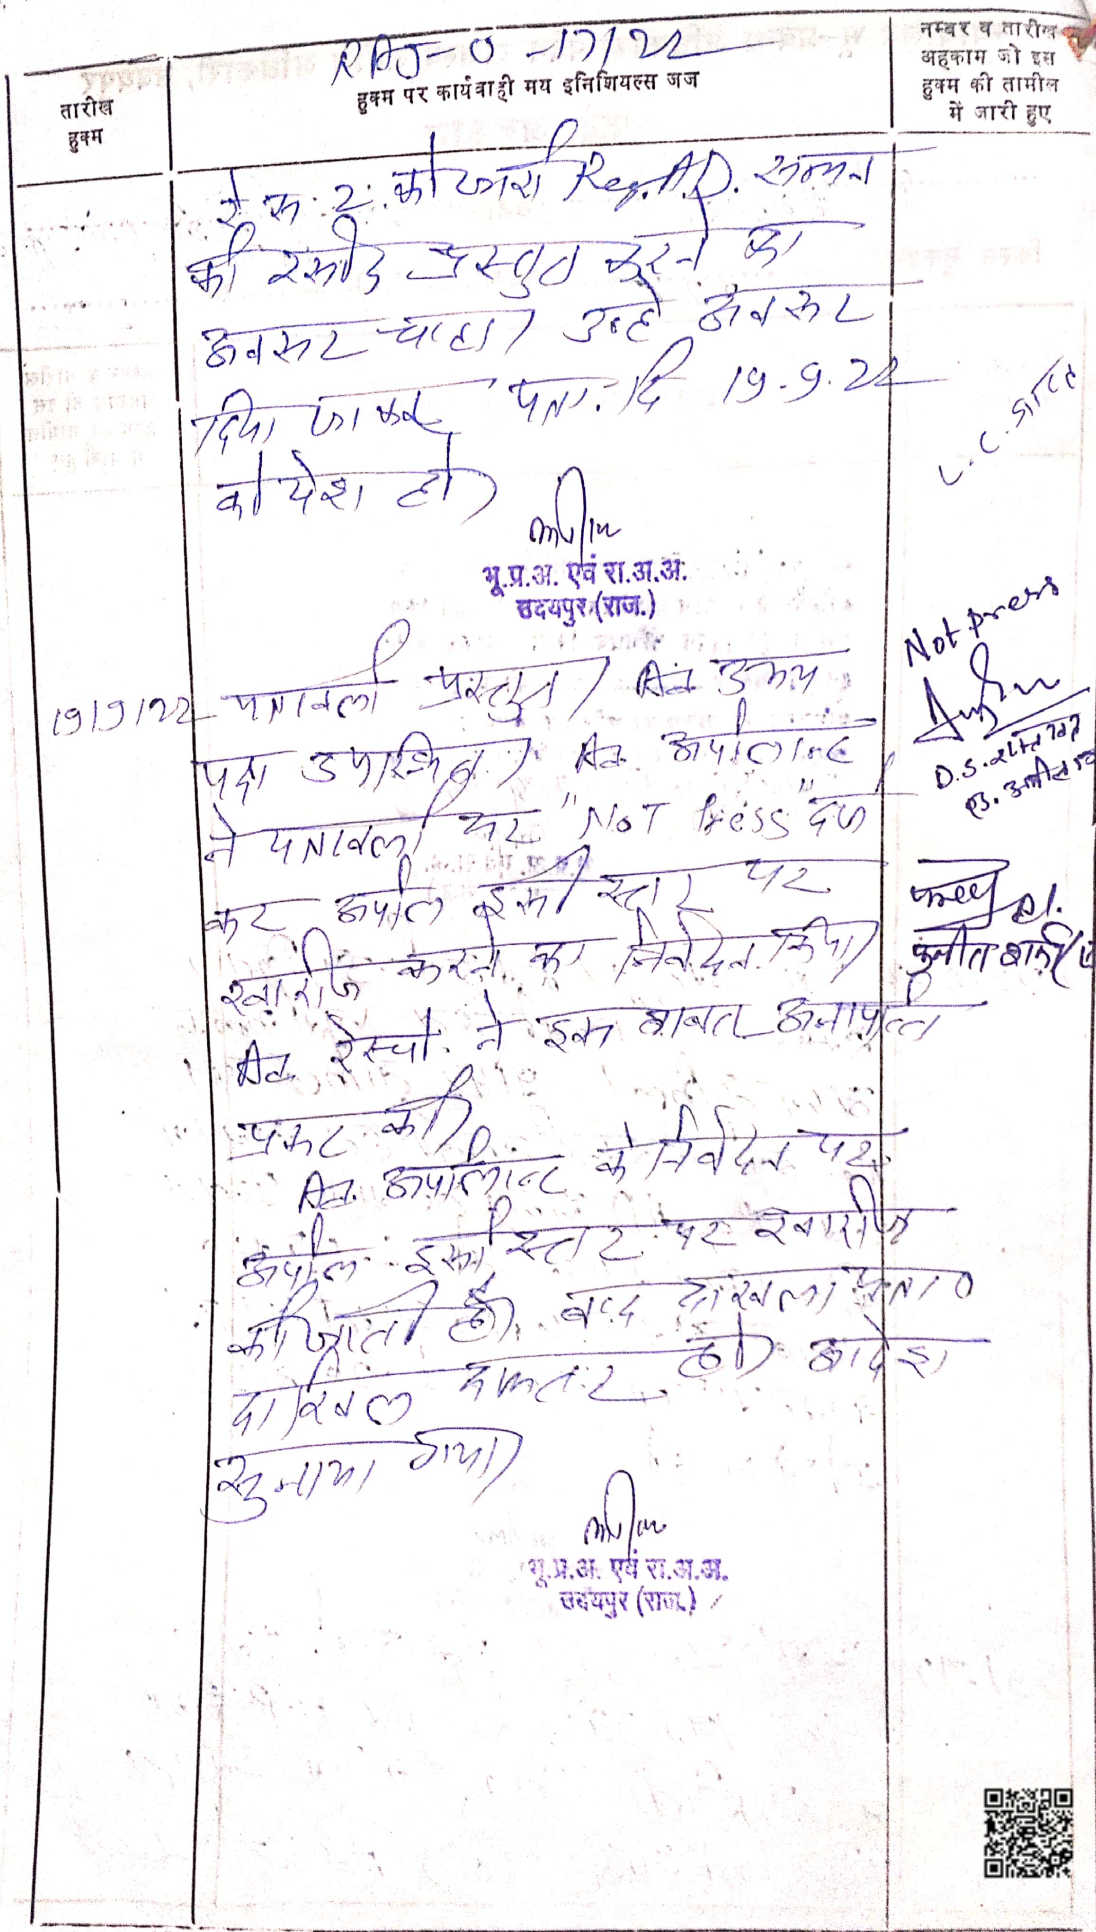 तारीख
हुक्म
17/22
हुक्म पर कार्यवाही मय इनिशियल्स जज
नम्बर व तारीख
अहकाम जो इस
हुक्म की तामील
में जारी हुए
रे. स. 2. को जारी Reg. A.D. सम्मन
की रसीद प्रस्तुत करने का
अवसर चाहा। उन्हे अवसर
दिया जाकर पत्रा. दि 19.9.22
को पेश हो।
भू.प्र.अ. एवं रा.अ.अ.
उदयपुर (राज.)
Not press
19/9/22 पत्रावली प्रस्तुत। Ad. उभय
पक्ष उपस्थित। Ad. अपीलान्ट
ने पत्रावली पर "NOT Press" दर्ज
कर अपील इसी स्तर पर
खारीज करने का निवेदन किया।
Ad. रेस्पो. ने इस बाबत अनापत्ति
प्रकट की।
Ad. अपीलान्ट के निवेदन पर
अपील इसी स्तर पर खारीज
की जाती है। बाद दाखला पत्रा०
दाखिल दफ्तर हो। आदेश
सुनाया गया।
भू.प्र.अ. एवं रा.अ.अ.
उदयपुर (राज.)